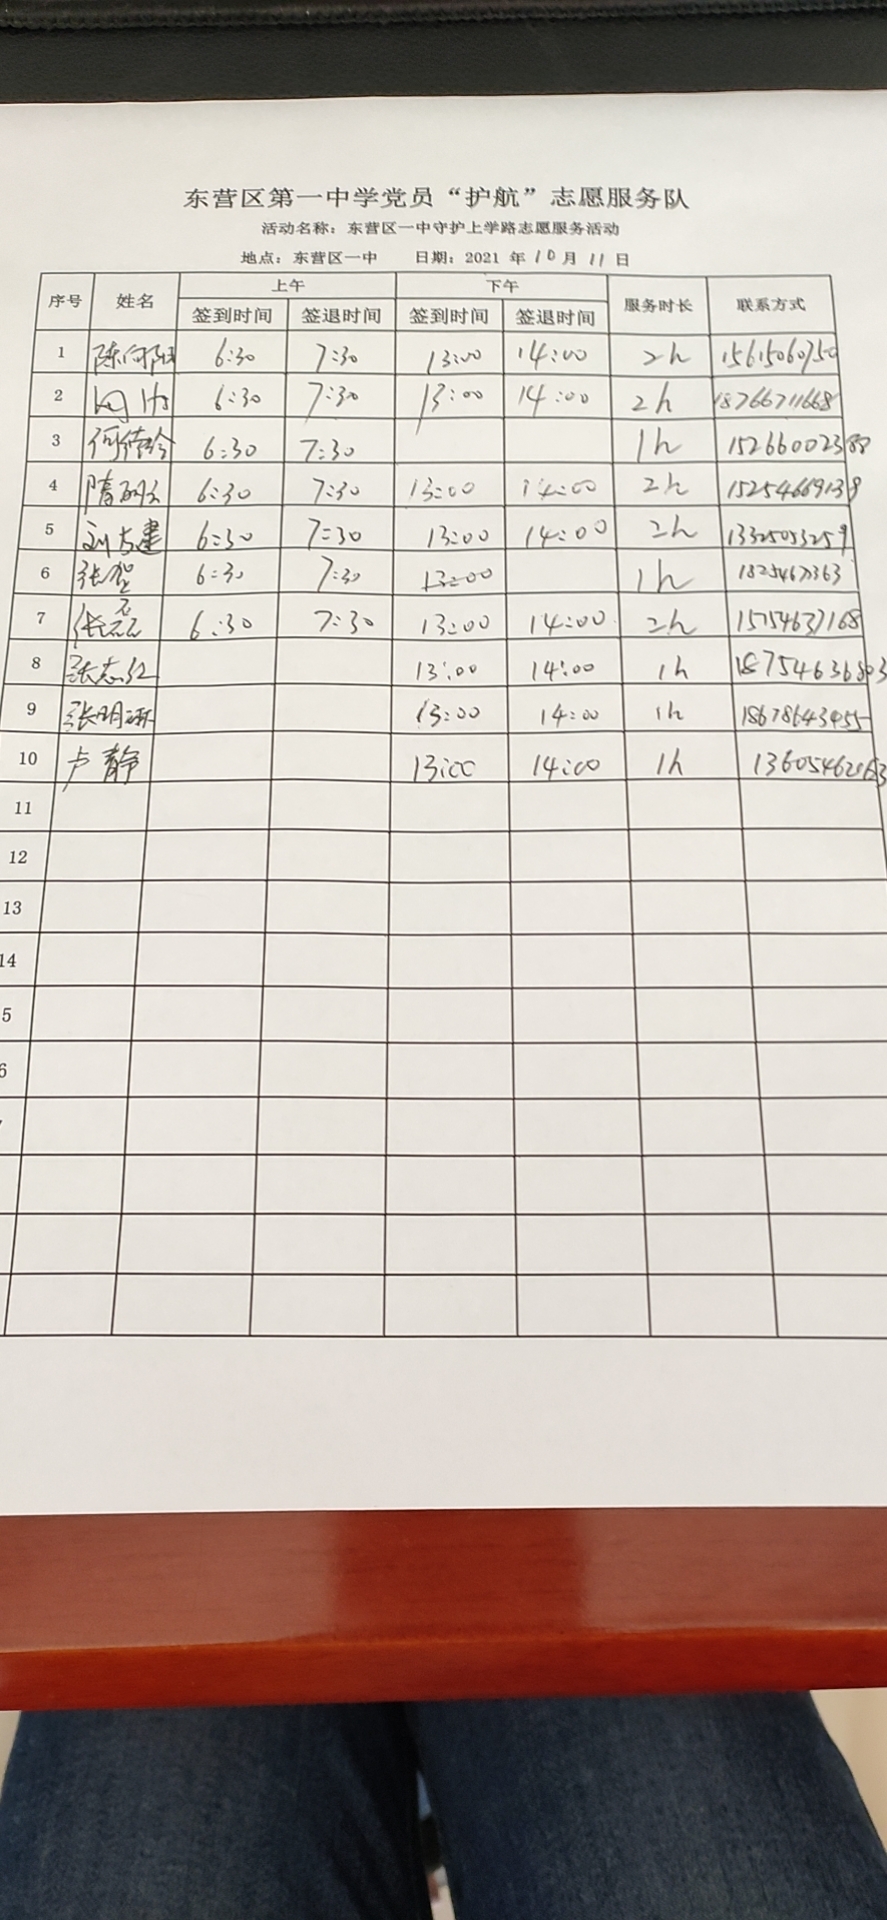 东营区第一中学党员“护航”志愿服务队
活动名称：东营区一中守护上学路志愿服务活动
地点：东营区一中 日期：2021 年 10 月 11 日
序号 姓名 上午 下午 服务时长 联系方式
签到时间 签退时间 签到时间 签退时间
1 6:30 7:30 13:00 14:00 2h
2 6:30 7:30 13:00 14:00 2h 18766711668
3 6:30 7:30 1h 15266002388
4 6:30 7:30 13:00 14:00 2h 15254669139
5 6:30 7:30 13:00 14:00 2h 13325053259
6 张贺 6:30 7:30 13:00 1h
7 张磊 6:30 7:30 13:00 14:00 2h 15154637168
8 张志红 13:00 14:00 1h 18754636803
9 张明环 13:00 14:00 1h 18678643455
10 卢静 13:00 14:00 1h
11
12
13
14
5
6